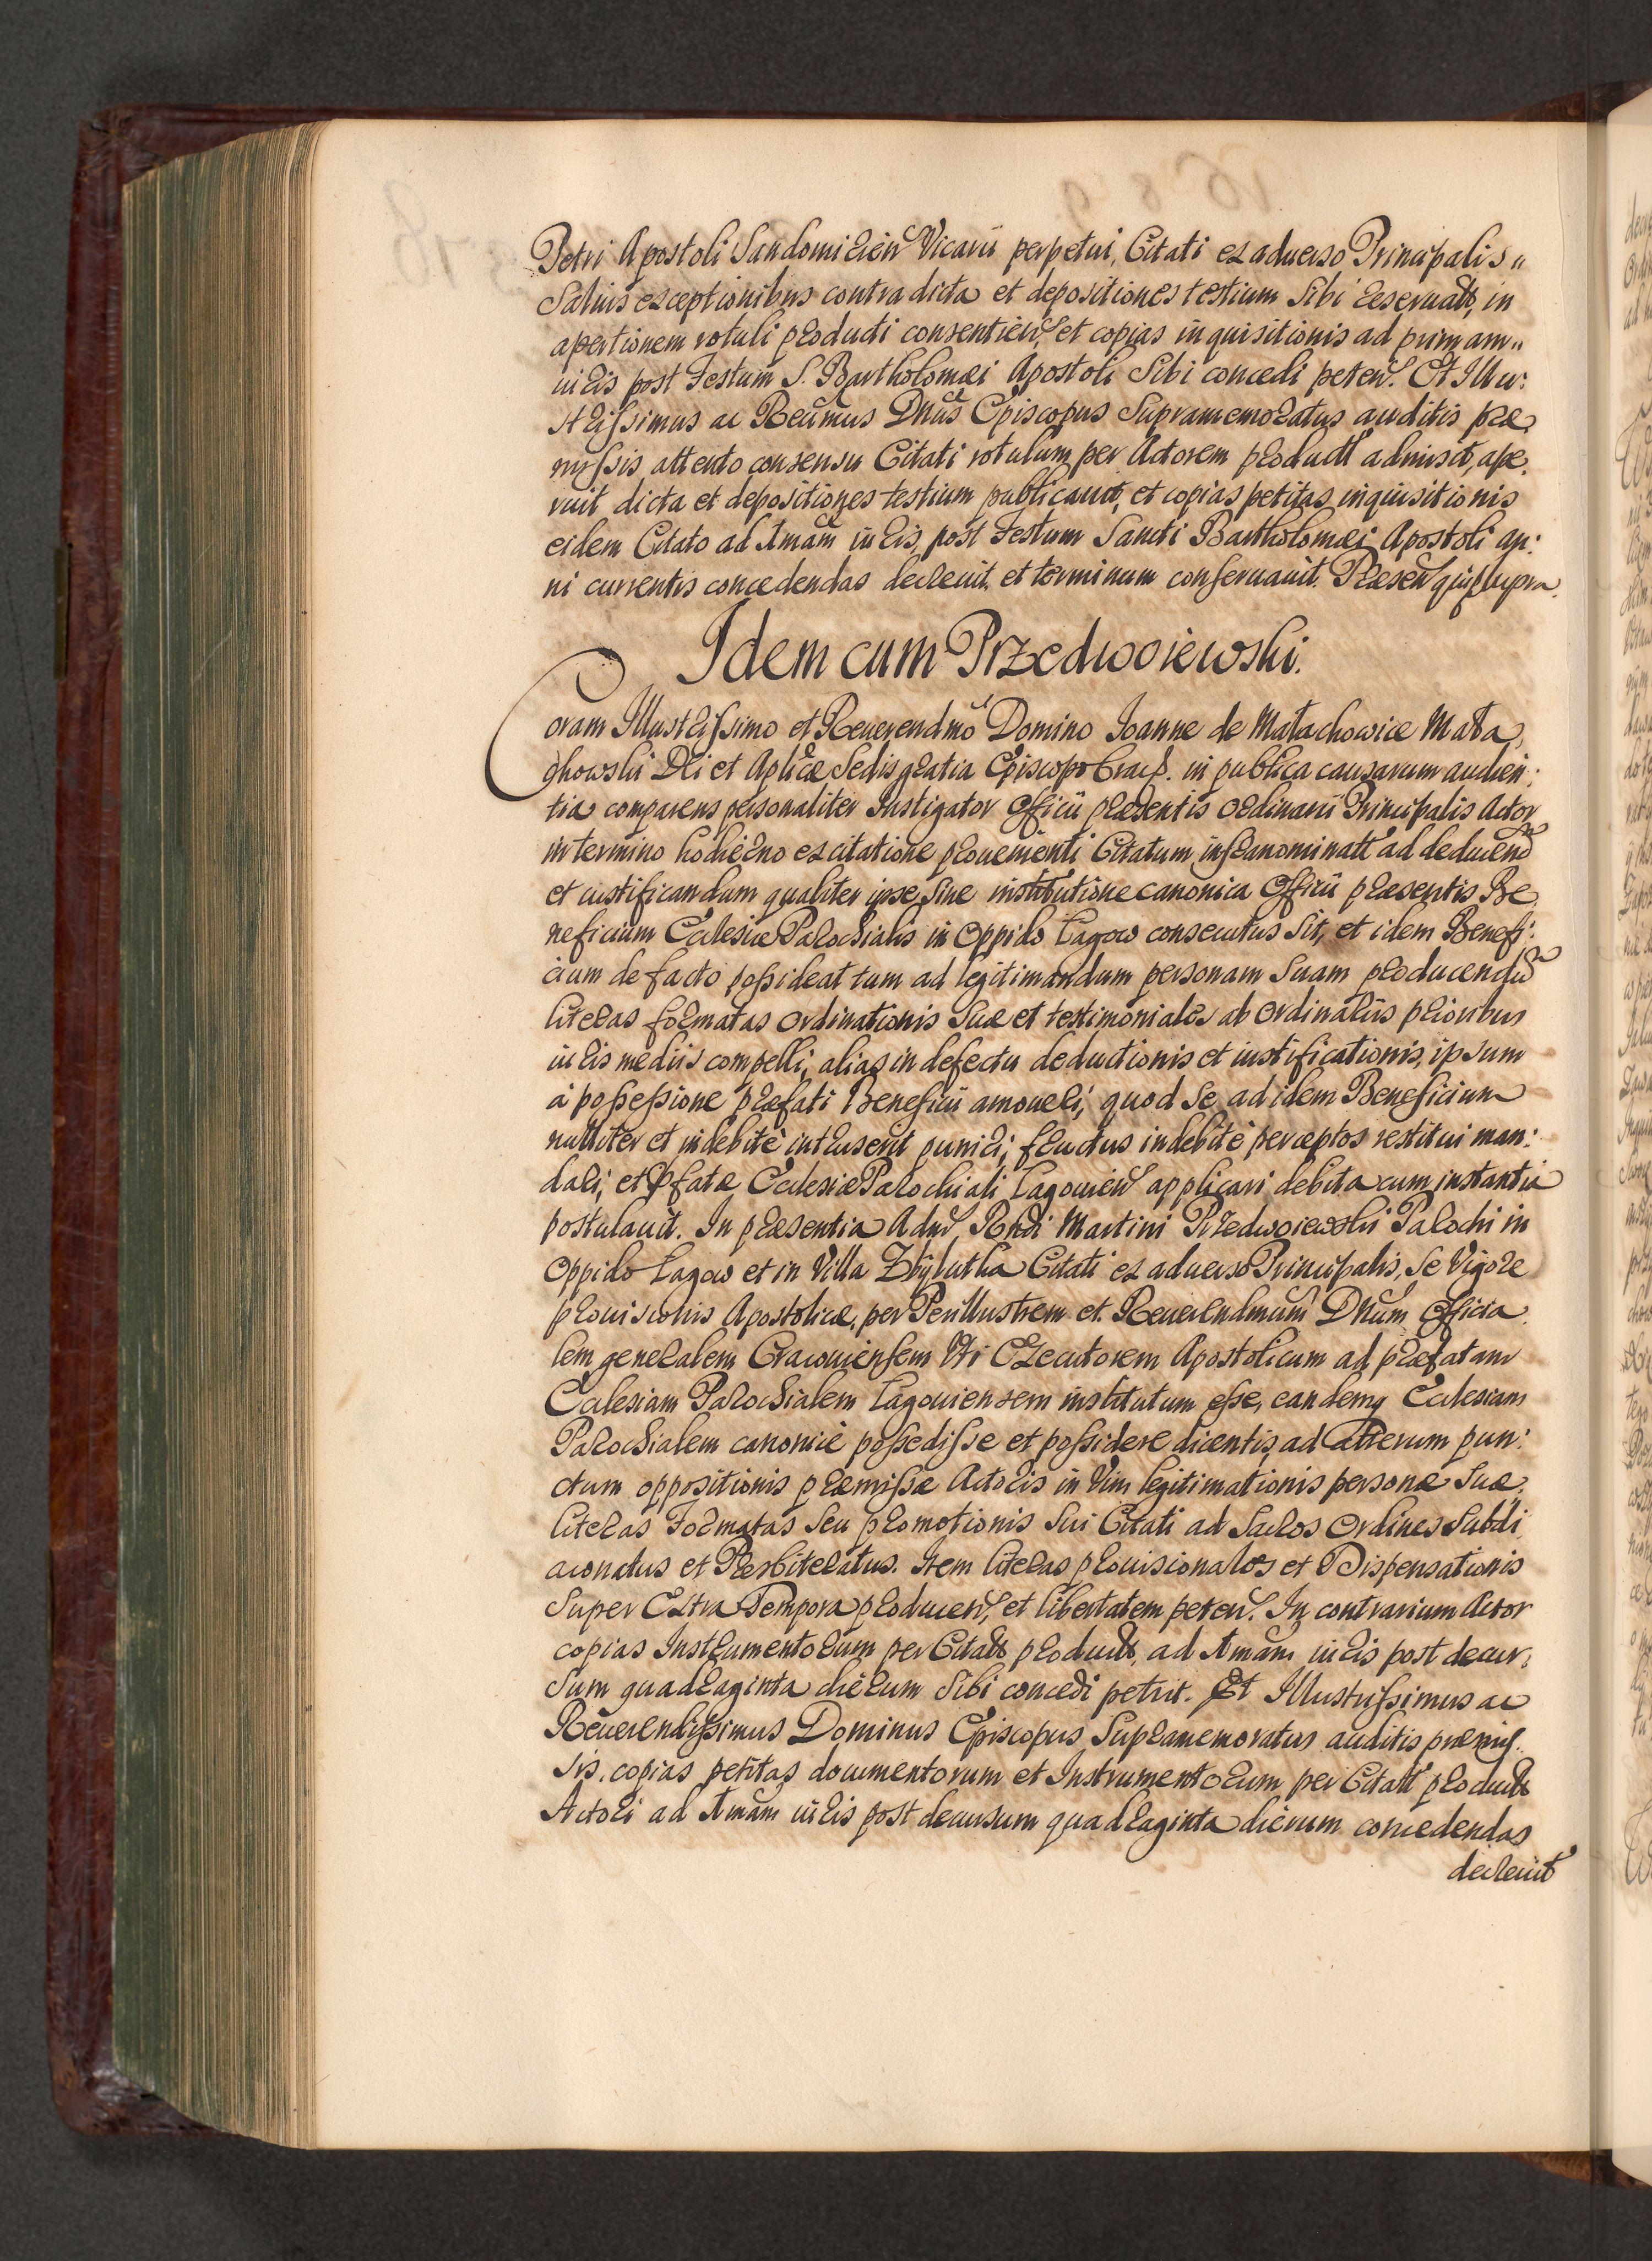 Petri Apostoli Sandomirien Vicarii perpetui, Citati ex aduerso Principalis „
Saluis exceptionibus contra dicta et depositiones testium Sibi reseruatt, in
apertionem rotuli producti consentien, et copias inquisitionis ad primam „
iuris post Festum S. Bartholomæi Apostoli Sibi concedi peten. Et Illu:
strissimus ac Reumus Dnus Episcopus Supramemoratus auditis præ,
missis attento consensu Citati rotulum per Actorem productt admisit, ape,
ruit dicta et depositiones testium publicauit, et copias petitas inquisitionis
eidem Citato ad Amam iuris, post Festum Sancti Bartholomæi Apostoli an:
ni currentis concedendas decreuit, et terminum conseruauit. Præsen quis supra.
Idem cum Przedwoiewski.
Coram Illustrissimo et Reuerendmo Domino Joanne de Małachowice Mała,
chowski Dei et Aplicæ Sedis gratia Episcopo Crac. in publica causarum audien:
tia comparens personaliter Instigator Officii præsentis ordinarii Principalis Actor
in termino hodierno ex citatione prouenienti Citatum infranominatt ad deducend
et iustificandum qualiter ipse sine institutione canonica Officii præsentis Be,
neficium Ecclesiæ Parochialis in Oppido Łagow consecutus sit, et idem Benefi:
cium de facto possideat tum ad legitimandum personam Suam producendis
literas formatas Ordinationis Suæ et testimoniales ab Ordinariis prioribus
iuris mediis compelli, alias in defectu deductionis et iustificationis, ipsum
à possessione præfati Beneficii amoueri, quod Se ad idem Beneficium
nulliter et indebitè intruserit puniri, fructus indebitè perceptos restitui man:
dari, et pfatæ Ecclesiæ Parochiali Łagouien applicari debita cum instantia
postulauit. In præsentia Adm Rndi Martini Przedwoiewski Parochi in
Oppido Łagow et in Villa Zbylutka Citati ex aduerso Principalis, Se Vigore
prouisionis Apostolicæ, per Perillustrem et Reuerendmum Dnum Officia,
lem generalem Cracouiensem Vti Executorem Apostolicum ad præfatam
Ecclesiam Parochialem Łagouiensem institutum esse, eandemq Ecclesiam
Parochialem canonicè possedisse et possidere dicentis, ad alterum pun:
ctum oppositionis præmissæ Actoris in Vim legitimationis personæ Suæ,
literas Formatas Seu promotionis Sui Citati ad Sacros Ordines Subdi,
aconatus et Præsbiteratus. Item literas prouisionales et Dispensationis
Super Extra Tempora producen, et libertatem peten. In contrarium Actor
copias Instrumentorum per Citatt productt, ad Amam iuris post decur,
sum quadraginta dierum Sibi concedi petiit. Et Illustrissimus ac
Reuerendissimus Dominus Episcopus Supramemoratus auditis præmis:
sis, copias petitas documentorum et Instrumentorum per Citatt productt
Actori ad Amam iuris post decursum quadraginta dierum concedendas
decreuit